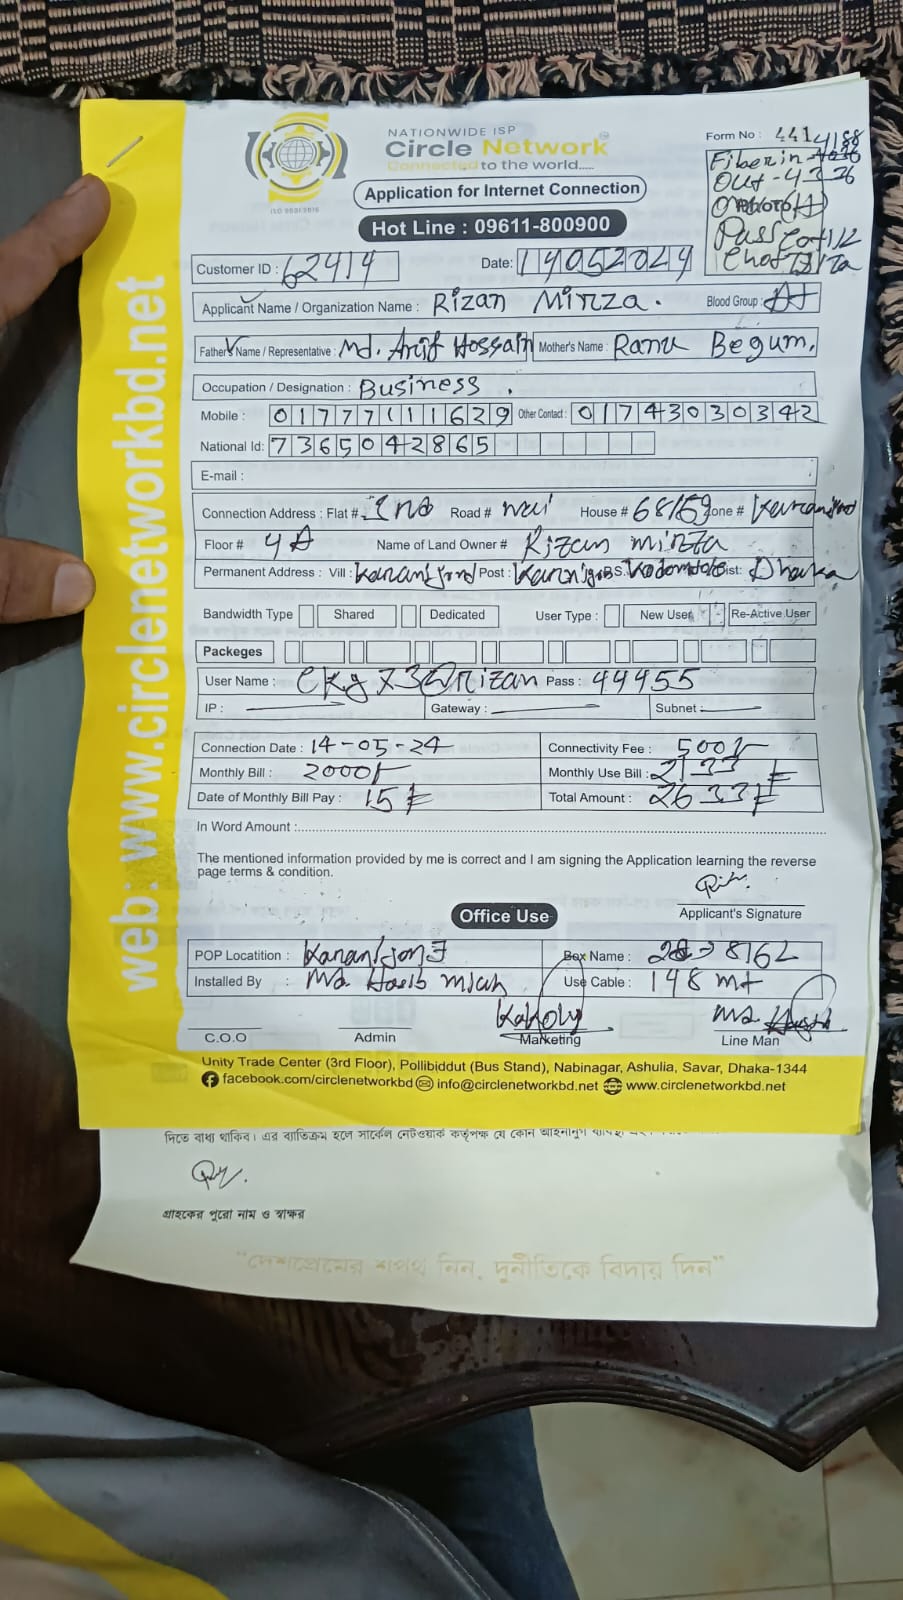 NATIONWIDE ISP
Circle Network
Connected to the world.....
ISO 9001:2015
Application for Internet Connection
Hot Line : 09611-800900
Form No : 441
4188
Fiber in
Out - 4236
Pass
Customer ID : 62414
Date: 14052024
Applicant Name / Organization Name : Rizan Mirza.
Blood Group : A+
Father's Name / Representative : Md. Arif Hossain
Mother's Name : Ranu Begum.
Occupation / Designation : Business.
Mobile : 01777111629
Other Contact : 01743030342
National Id: 7365042865
E-mail :
Connection Address : Flat # Road # House # 68/69 Zone #
Floor # 4A Name of Land Owner # Rizan mirza
Permanent Address : Vill : Post : P.S. Dist: Dhaka
Bandwidth Type Shared Dedicated User Type : New User Re-Active User
Packeges
User Name : Pass : 44455
IP : Gateway : Subnet :
Connection Date : 14-05-24
Connectivity Fee : 500/-
Monthly Bill : 2000/-
Monthly Use Bill : 2133
Date of Monthly Bill Pay : 15
Total Amount : 2633
In Word Amount :
The mentioned information provided by me is correct and I am signing the Application learning the reverse
page terms & condition.
Applicant's Signature
Office Use
POP Locatition :
Box Name : 8162
Installed By : Md Hasib miah
Use Cable : 148 mt
C.O.O
Admin
Kakoly
Marketing
Md.
Line Man
Unity Trade Center (3rd Floor), Pollibiddut (Bus Stand), Nabinagar, Ashulia, Savar, Dhaka-1344
facebook.com/circlenetworkbd info@circlenetworkbd.net www.circlenetworkbd.net
web : www.circlenetworkbd.net
দিতে বাধ্য থাকিব। এর ব্যতিক্রম হলে সার্কেল নেটওয়ার্ক কর্তৃপক্ষ যে কোন
গ্রাহকের পুরো নাম ও স্বাক্ষর
"দেশপ্রেমের শপথ নিন, দুর্নীতিকে বিদায় দিন"